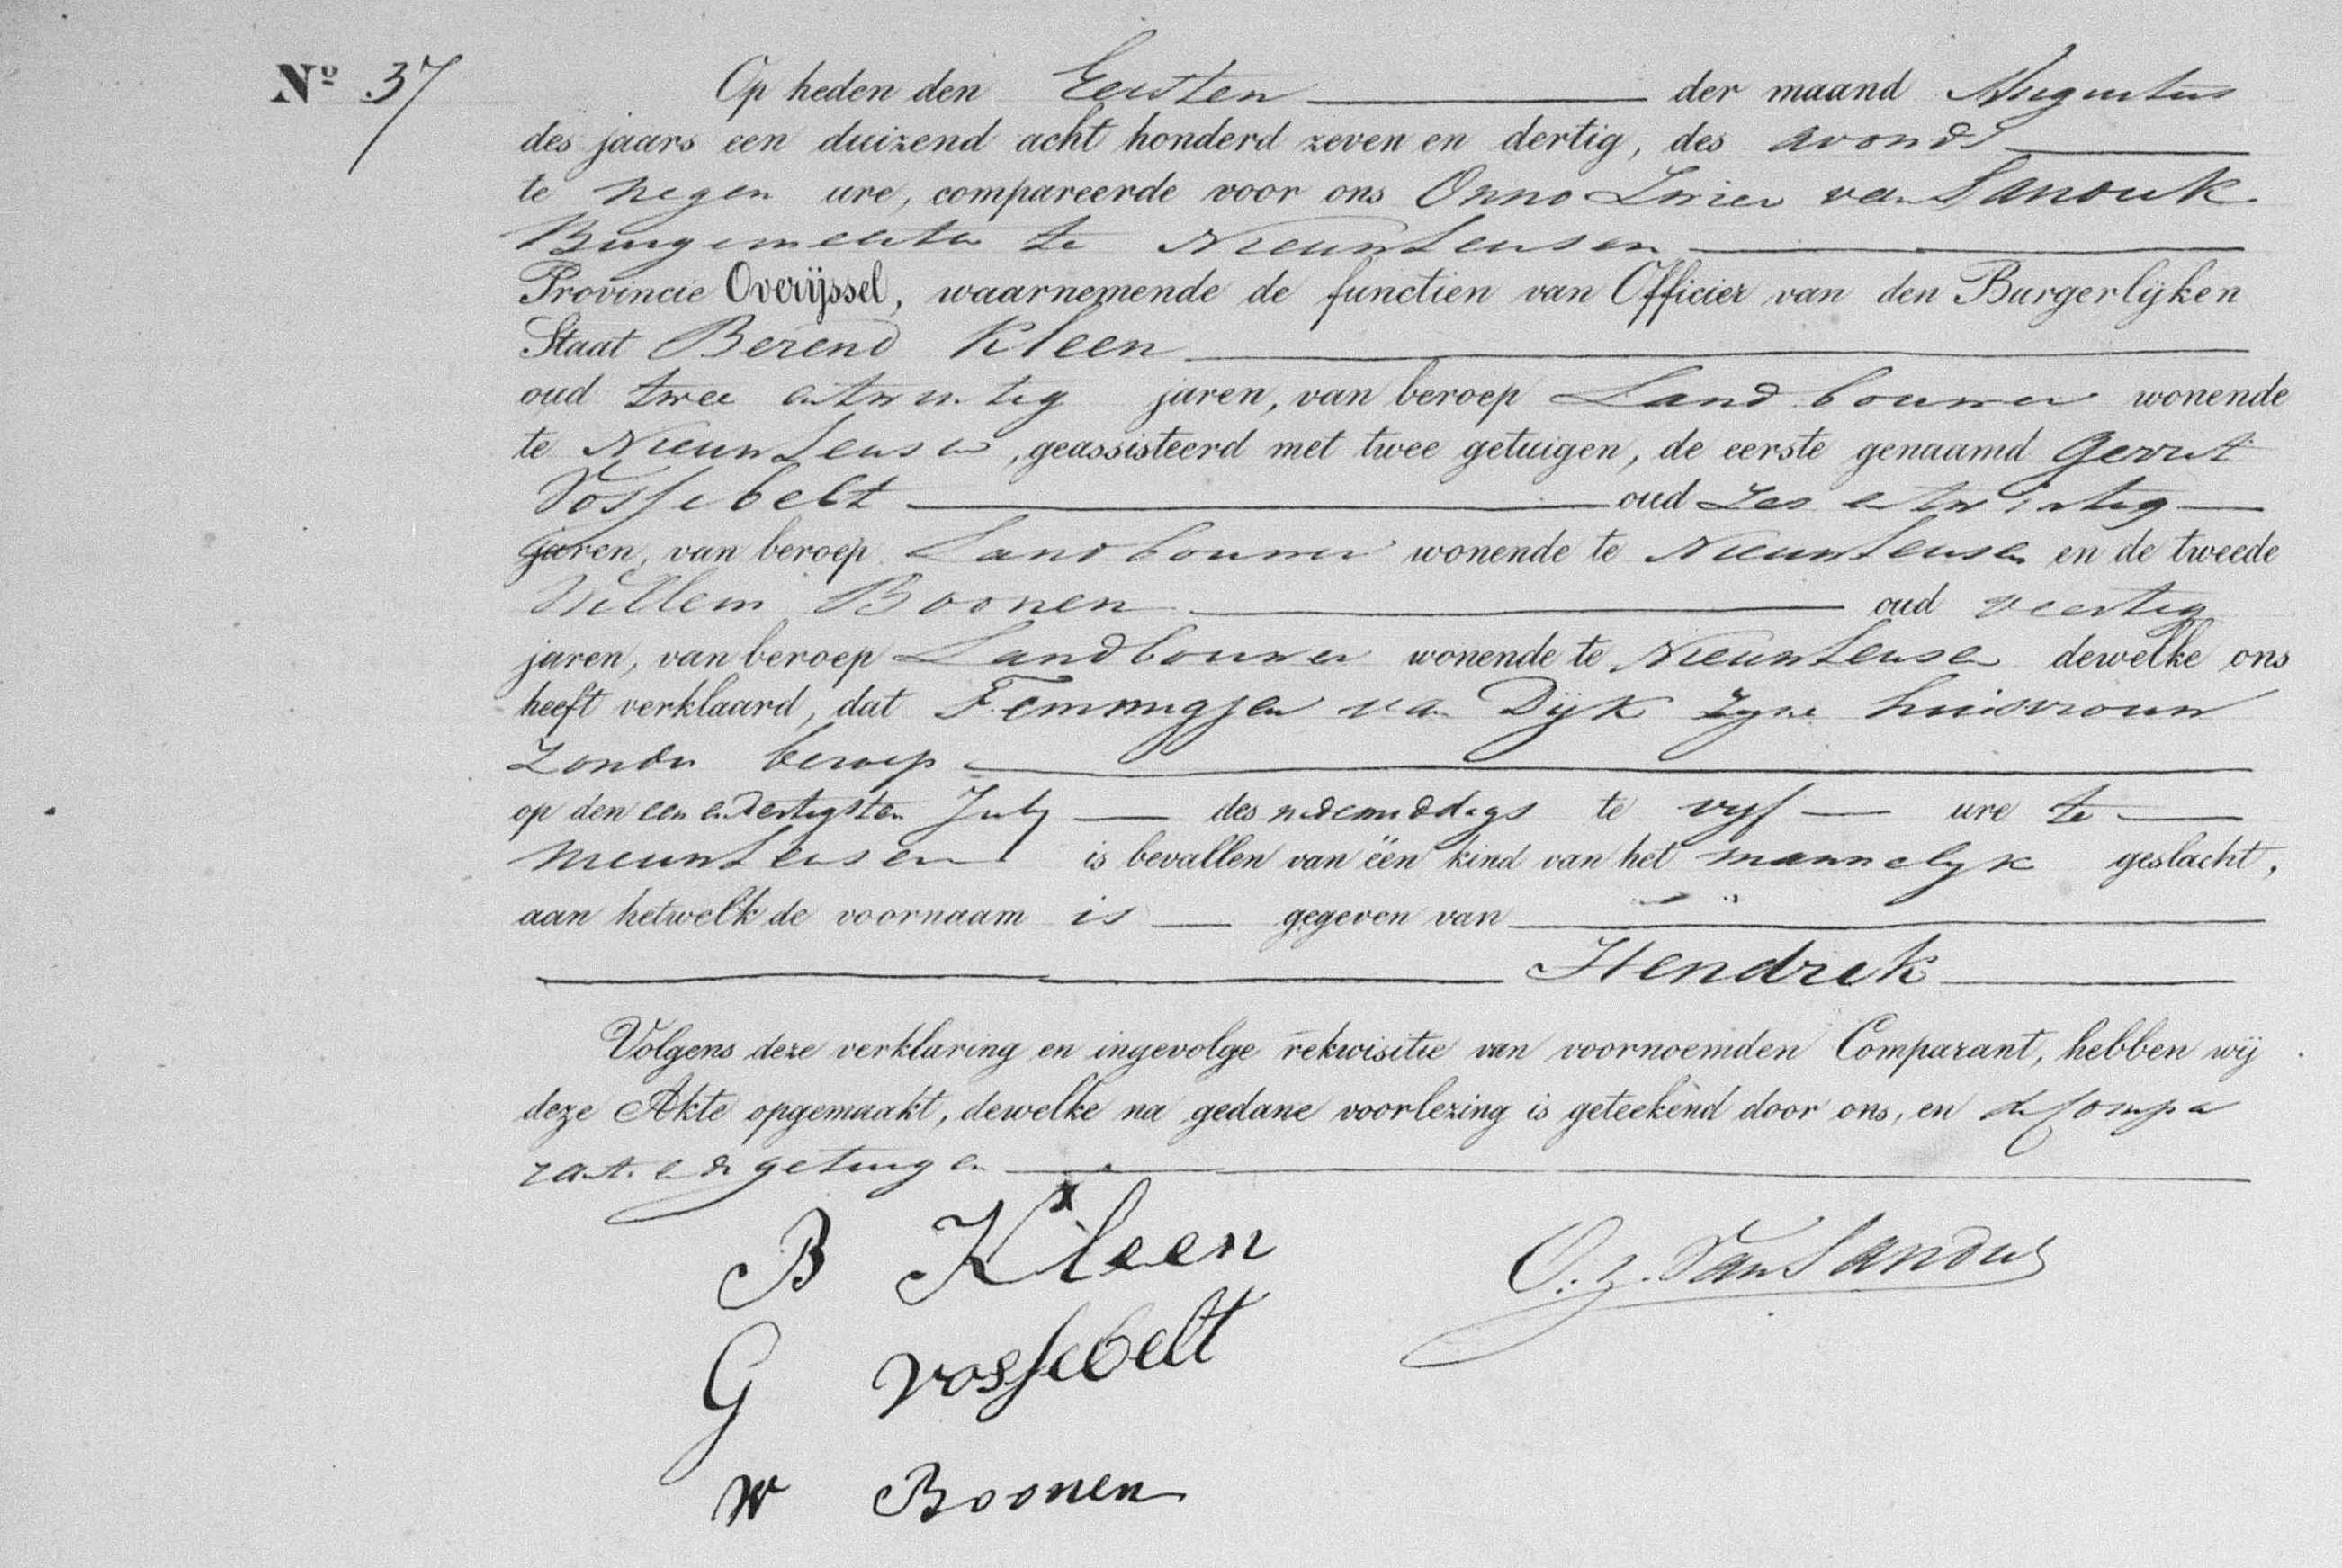 No 37
Op heden den Eersten der maand Augustus
des jaars een duizend acht honderd zeven en dertig, des avonds
te negen ure, compareerde voor ons Onno Zwier van Sandick
Burgemeester te Nieuwleusen
Provincie Overijssel, waarnemende de functien van Officier van den Burgerlijken
Staat Berend Kleen
oud twee entwintig jaren, van beroep Landbouwer wonende
te Nieuwleusen, geassisteerd met twee getuigen, de eerste genaamd Gerrit
Vossebelt oud zes entwintig
jaren, van beroep Landbouwer wonende te Nieuwleusen en de tweede
Willem Boonen oud veertig
jaren, van beroep Landbouwer wonende te Nieuwleusen dewelke ons
heeft verklaard, dat Femmigjen van Dijk zijne huisvrouw
zonder beroep
op den een endertigsten July des namiddags te vyf ure te
Nieuwleusen is bevallen van één kind van het mannelyk geslacht,
aan hetwelk de voornaam is gegeven van
Hendrik
Volgens deze verklaring en ingevolge rekwisitie van voornoemden Comparant, hebben wij
deze Akte opgemaakt, dewelke na gedane voorlezing is geteekend door ons, en de Compa
rant en de getuigen
B Kleen
O. Z. Van Sandick
G Vossebelt
W Boonen